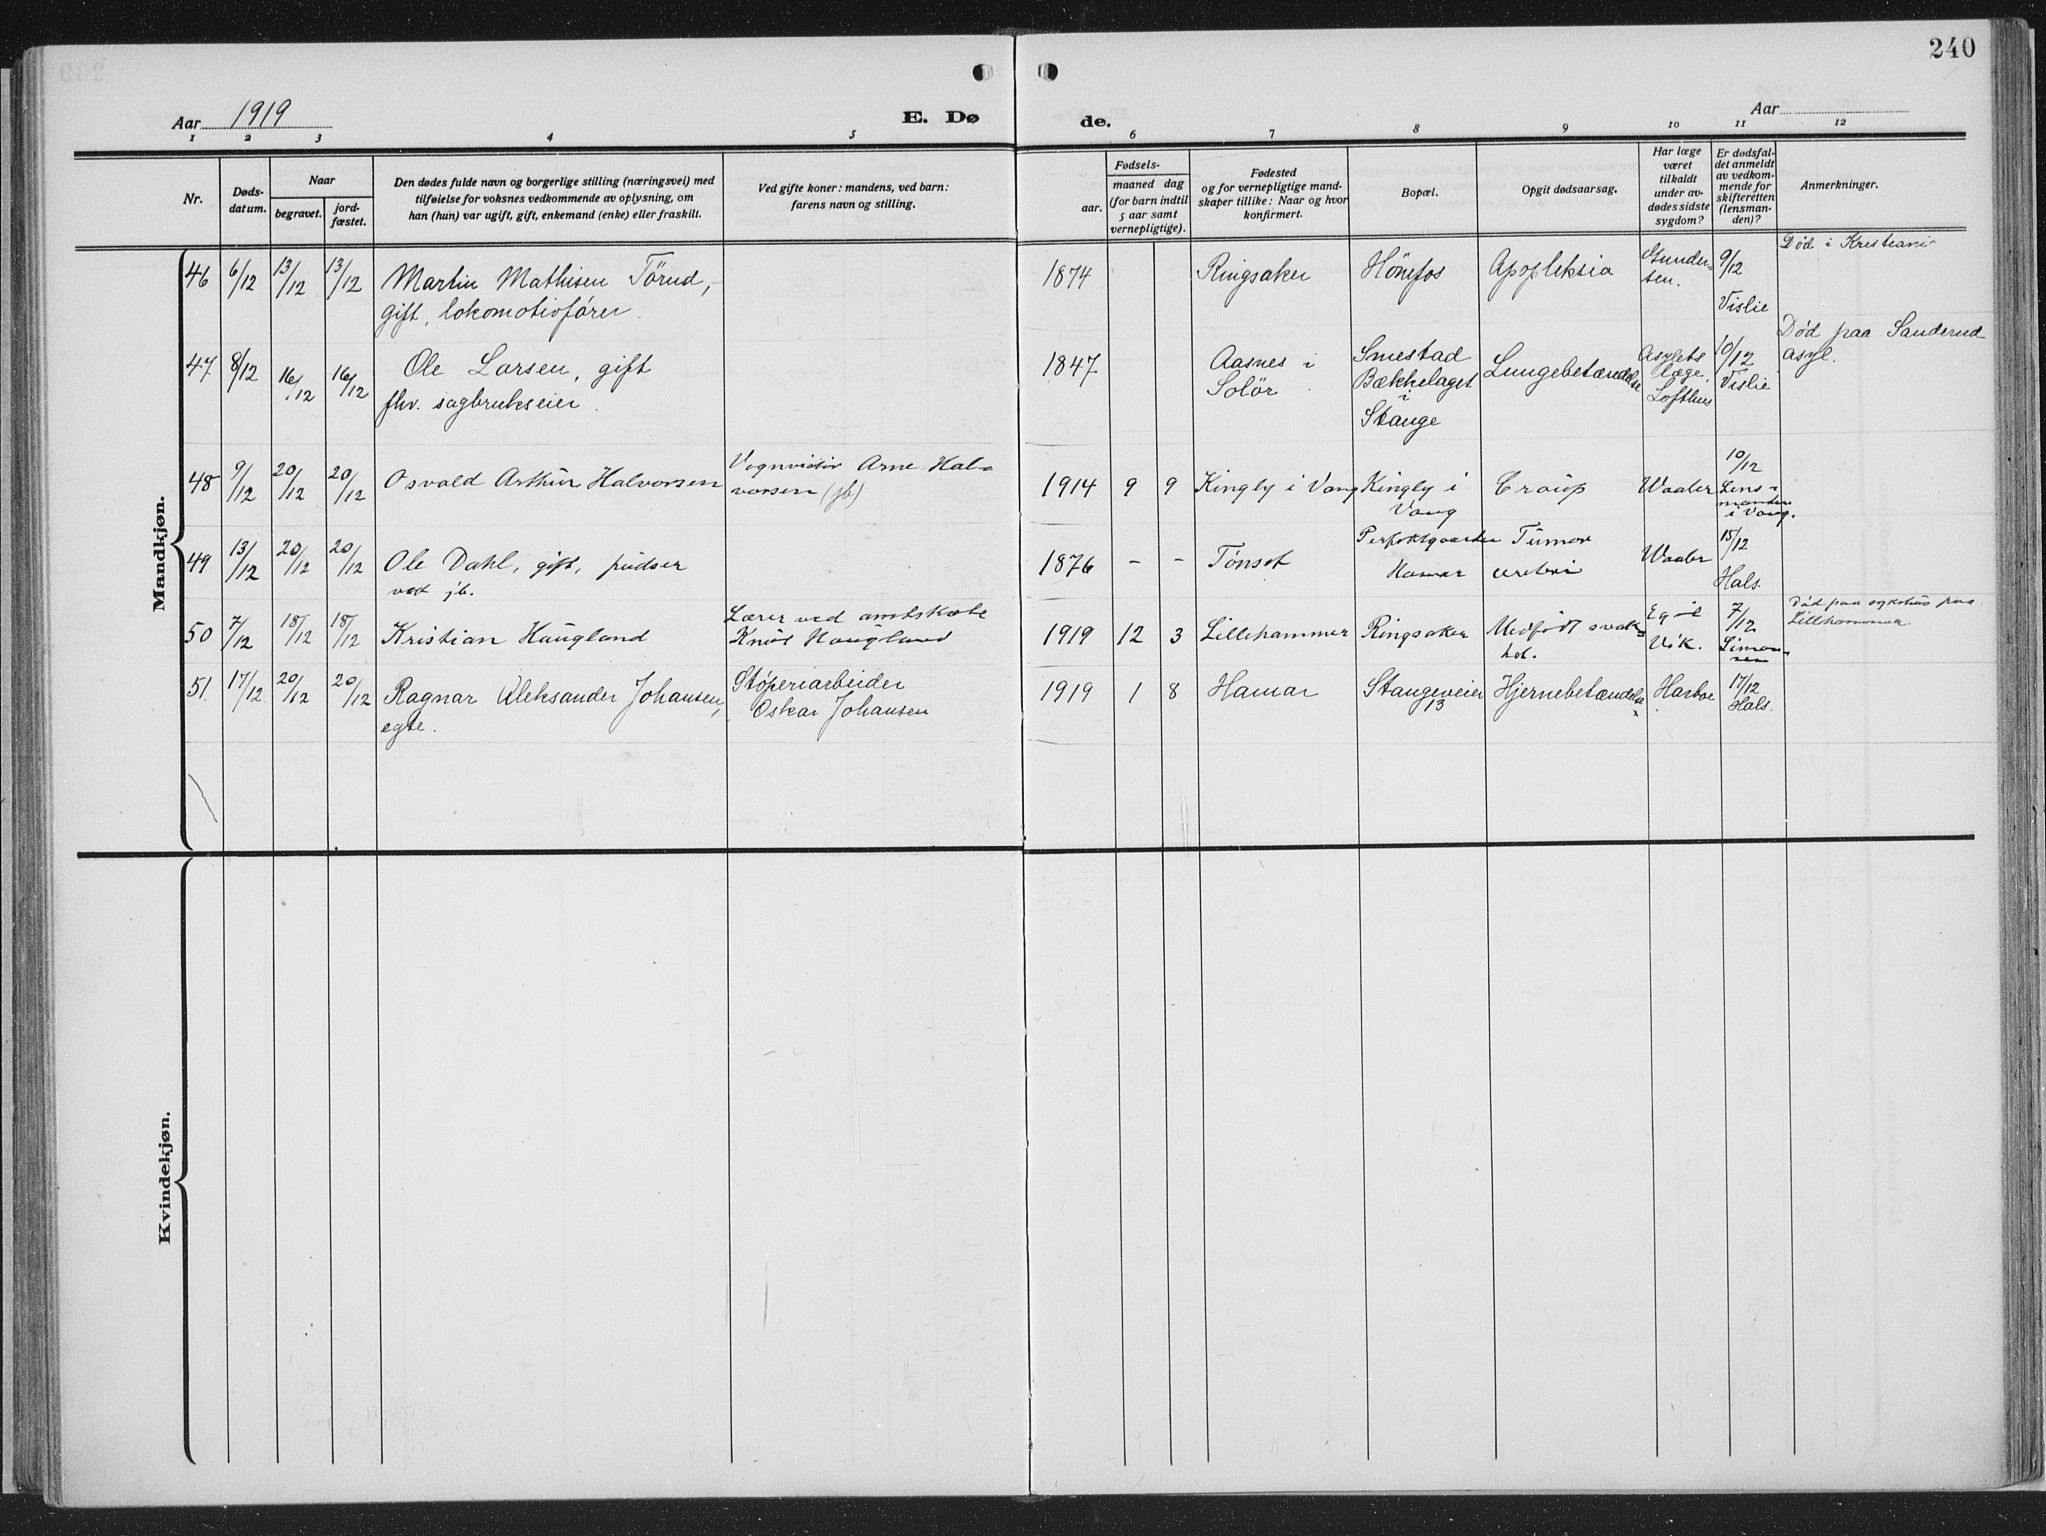 240
Aar 1919
E. Dø
de.
Aar
1 2 3 4 5 6 7 8 9 10 11 12
Nr.
Døds-
datum.
Naar
begravet.
jord-
fæstet.
Den dødes fulde navn og borgerlige stilling (næringsvei) med
tilføielse for voksnes vedkommende av oplysning, om
han (hun) var ugift, gift, enkemand (enke) eller fraskilt.
Ved gifte koner: mandens, ved barn:
farens navn og stilling.
Fødsels-
aar.
maaned dag
(for barn indtil
5 aar samt
vernepligtige).
Fødested
og for vernepligtige mand-
skaper tillike: Naar og hvor
konfirmert.
Bopæl.
Opgit dødsaarsag.
Har læge
været
tilkaldt
under av-
dødes sidste
sygdom?
Er dødsfal-
det anmeldt
av vedkom-
mende for
skifteretten
(lensman-
den)?
Anmerkninger.
Mandkjøn.
46 6/12 13/12 13/12 Martin Mathisen Törud,
gift, lokomotivfører.
1874 Ringsaker Hönefos Apopleksia Gunder-
sen. 9/12
Vislie
Død i Kristiani-
47 8/12 16/12 16/12 Ole Larsen, gift
fhv. sagbrukseier.
1847 Aasnes i
Solör
Smestad
Bækkelaget
i
Stange
Lungebetændelse
Asylets
læge,
Lofthus
10/12
Vislie
Død paa Sanderud
asyl.
48 9/12 20/12 20/12 Osvald Arthur Halvorsen
Vognvisitør Arne Hal-
vorsen (jb)
1914 9 9 Kingly i Vang Kingly i
Vang
Croup Waaler 10/12
Lens-
manden
i Vang.
49 13/12 20/12 20/12 Ole Dahl, gift, pudser
ved jb.
1876 - - Tönset
Hamar
Tumor
cerebri
Waaler 15/12
Hals.
50 7/12 18/12 18/12 Kristian Haugland
Lærer ved
Knut Haugland
1919 12 3 Lillehammer Ringsaker Medfödt svak-
het.
Egil
Vik.
7/12
Simon-
sen
Død paa sykehus paa
Lillehammer.
51. 17/12 20/12 20/12 Ragnar Aleksander Johansen,
egte.
Støperiarbeider
Oskar Johansen
1919 1 8 Hamar Stangeveien
13
Hjernebetændelse Harboe 17/12
Hals.
Kvindekjøn.